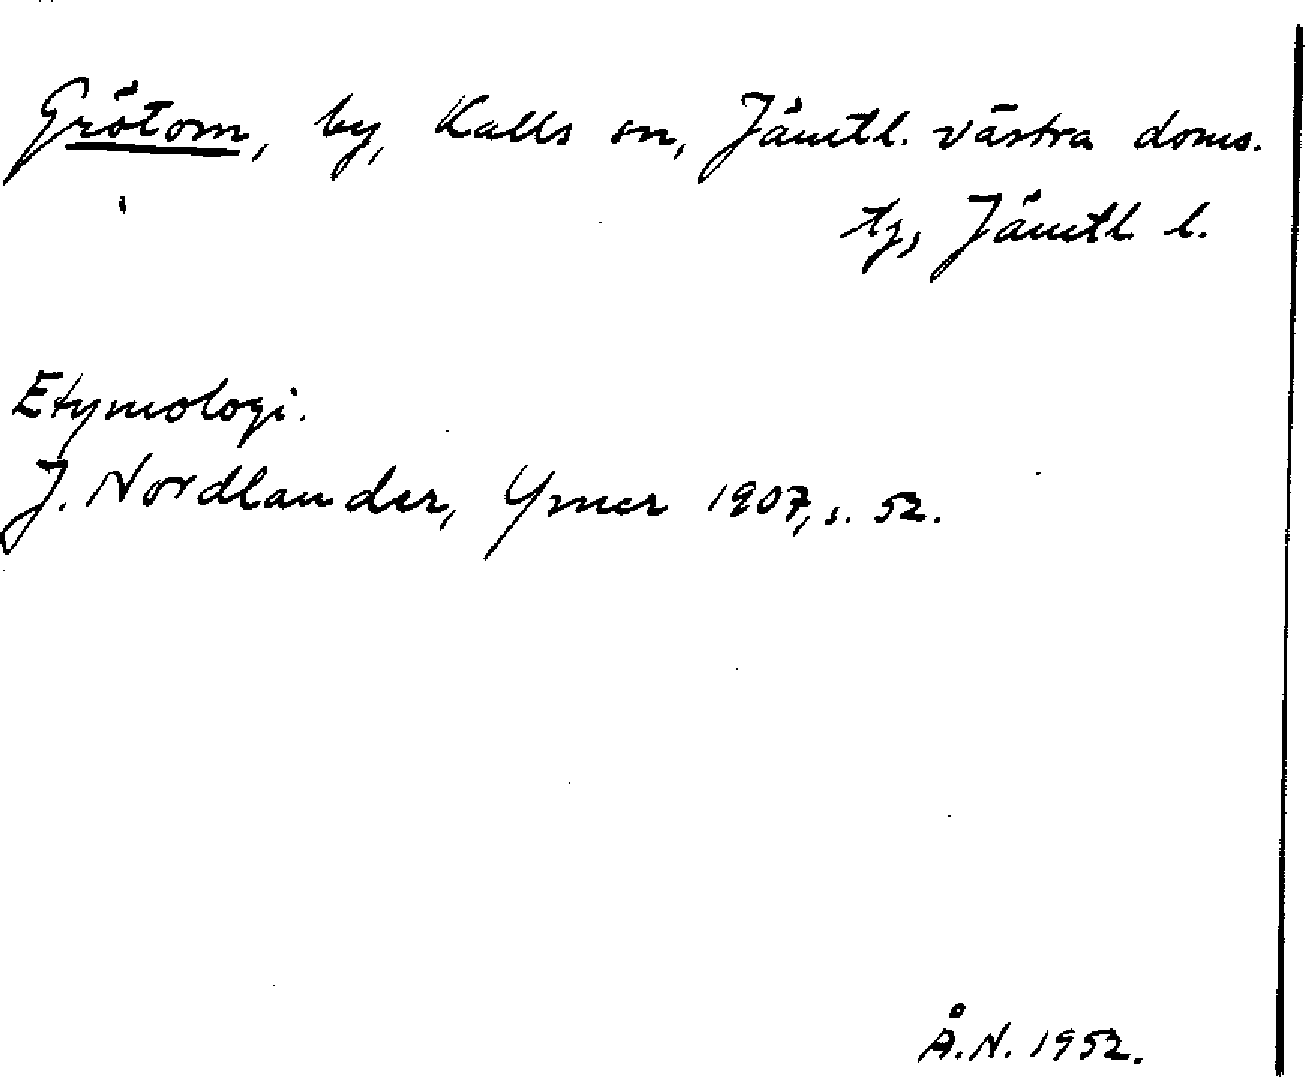 Grötom, by, Kalls sn, Jämtl. västra doms.
tg, Jämtl. l.
Etymologi.
J. Nordlander, Ymer 1907, s. 52.
Å.N. 1952.